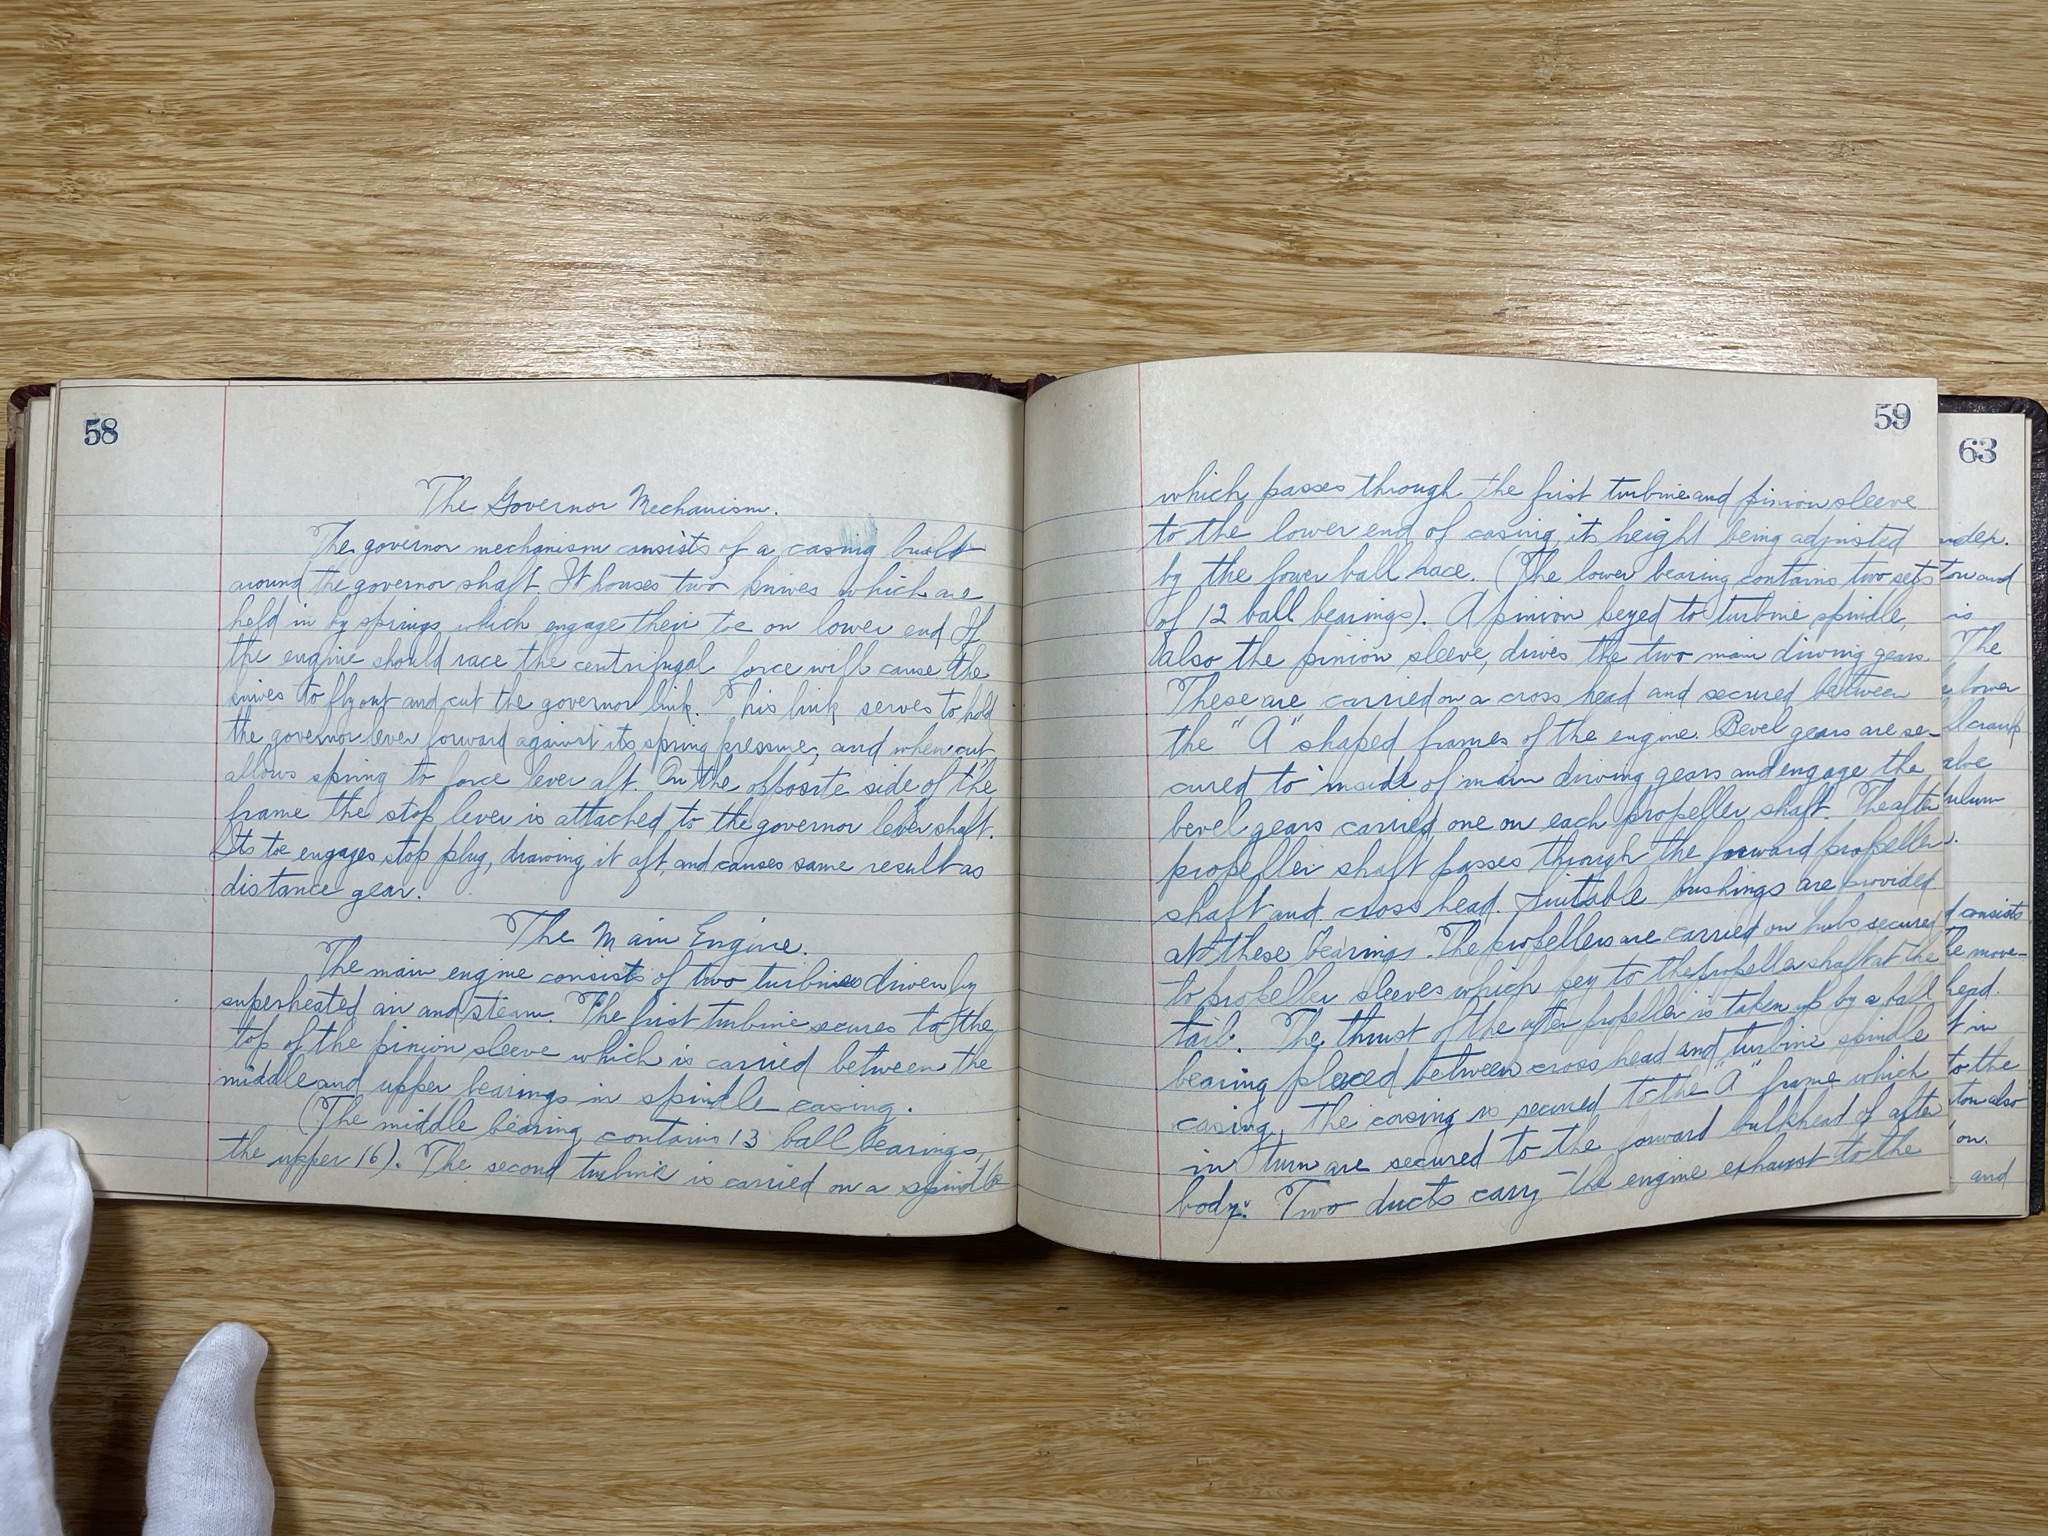 58
The Governor Mechanism.
The governor mechanism consists of a casing built
around the governor shaft. It houses two knives which are
held in by springs which engage their toe on lower end If
the engine should race the centrifugal force will cause the
knives to fly out and cut the governor link. This link serves to hold
the governor lever forward against its spring pressure, and when cut,
allows spring to force lever aft. On the opposite side of the
frame the stop lever is attached to the governor lever shaft.
Its toe engages stop plug, drawing it aft, and causes same result as
distance gear.
The Main Engine.
The main engine consists of two turbines driven by
superheated air and steam. The first turbine secures to the
top of the pinion sleeve which is carried between the
middle and upper bearings in spindle casing.
(The middle bearing contains 13 ball bearings,
the upper 16). The second turbine is carried on a spindle
59
which passes through the first turbine and pinion sleeve
to the lower end of casing, its height being adjusted
by the lower ball race. (The lower bearing contains two sets
of 12 ball bearings). A pinion keyed to turbine spindle,
also the pinion sleeve, drives the two main driving gears.
These are carried on a cross head and secured between
the "A" shaped frames of the engine. Bevel gears are se-
cured to inside of main driving gears and engage the
bevel gears carried one on each propeller shaft. The after
propeller shaft passes through the forward propeller
shaft and cross head. Suitable bushings are provided
at these bearings. The propellers are carried on hubs secured
to propeller sleeves which key to the propeller shaft at the
tail. The thrust of the after propeller is taken up by a ball
bearing placed between cross head and turbine spindle
casing, the casing is secured to the "A" frame which
in turn are secured to the forward bulkhead of after
body. Two ducts carry the engine exhaust to the
63
ton and
is
The
lower
crank
consists
move-
head.
in
to the
ton also
on.
and